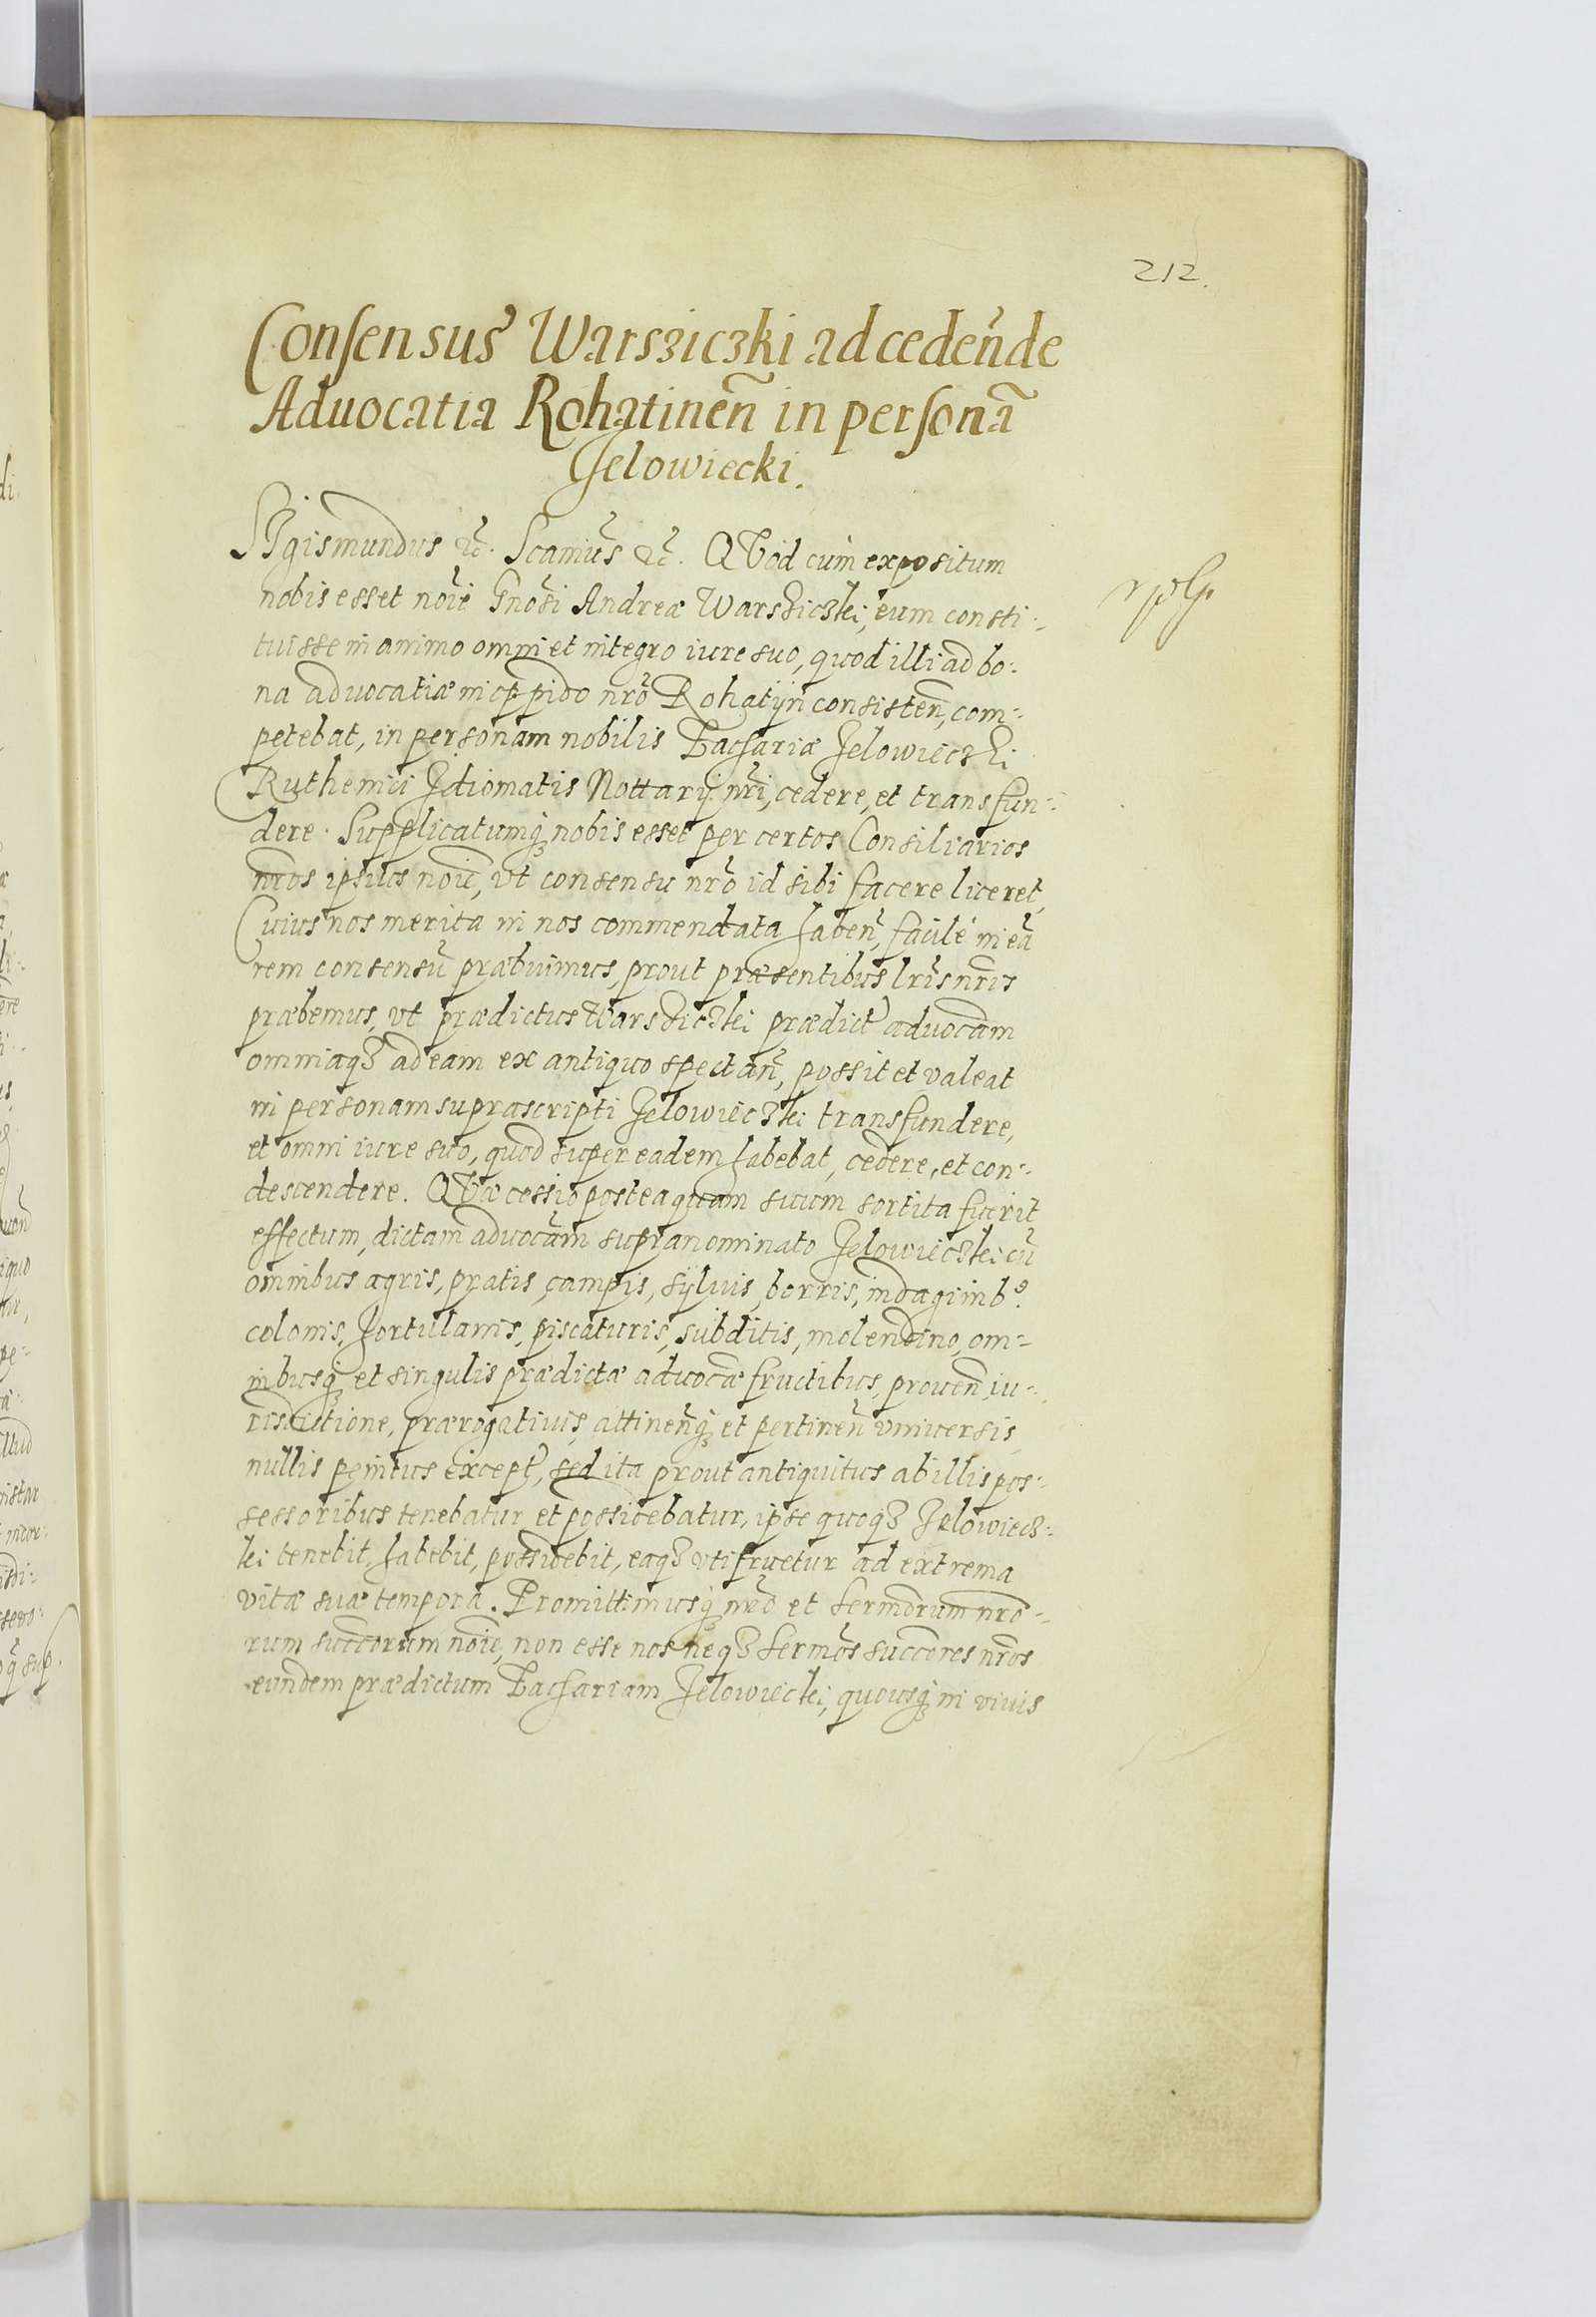 212.
Consensus Warsziczki ad cedeñde
Aduocatia Rohatineñ in personã
Jelowiecki.
SJgismundus &c̃. Scamus̃ &c̃. QVod cum expositum
nobis esset noĩe Gnosĩ Andreæ Warsziczki, eum consti-
tuisse in animo omni et integro iure suo, quod illi ad bo-
na aduocatiæ in oppido nrõ Rohatÿn consisteñ, com-
petebat, in personam nobilis Zachariæ Jelowieczki
Ruthenici Jdiomatis Nottarij nrĩ, cedere, et transfun-
dere. Supplicatumq; nobis esset per certos Consiliarios
nr̃os ipsius noĩe, vt consensu nrõ id sibi facere liceret,
Cuius nos merita in nos commendata habeñ, facilè in eã
rem consensũ præbuimus, prout præsentibus lrĩs nrĩs
præbemus, vt prædictus Warsziczki prædict̃ aduocãm
omniaq3 ad eam ex antiquo spectañ, possit et valeat
in personam suprascripti Jelowieczki transfundere,
et omni iure suo, quod super eadem habebat, cedere, et con-
descendere. QVæ cessio posteaquam suum sortita fuerit
effectum, dictam aduocãm supranominato Jelowieczki cũ
omnibus agris, pratis, campis, sÿluis, borris, indaginib9
colonis, hortulanis, piscaturis, subditis, molendino, om-
nibusq; et singulis prædictæ aduocãæ fructibus, proueñ, iu-
risdictione, prærogatiuis, attineñq; et pertineñ vniuersis
nullis penitus except̃, sed ita prout antiquitus ab illis pos-
sessoribus tenebatur et possidebatur, ipse quoq3 Jelowiecz-
ki tenebit, habebit, possidebit, eaq3 vtifruetur ad extrema
vitæ suæ tempora. Promittimusq; nrõ et Sermõrum nrõ-
rum succorum noĩe, non esse nos neq3 Sermõs succores nrõs
eundem prædictum Zachariam Jelowiecki, quousq; in viuis